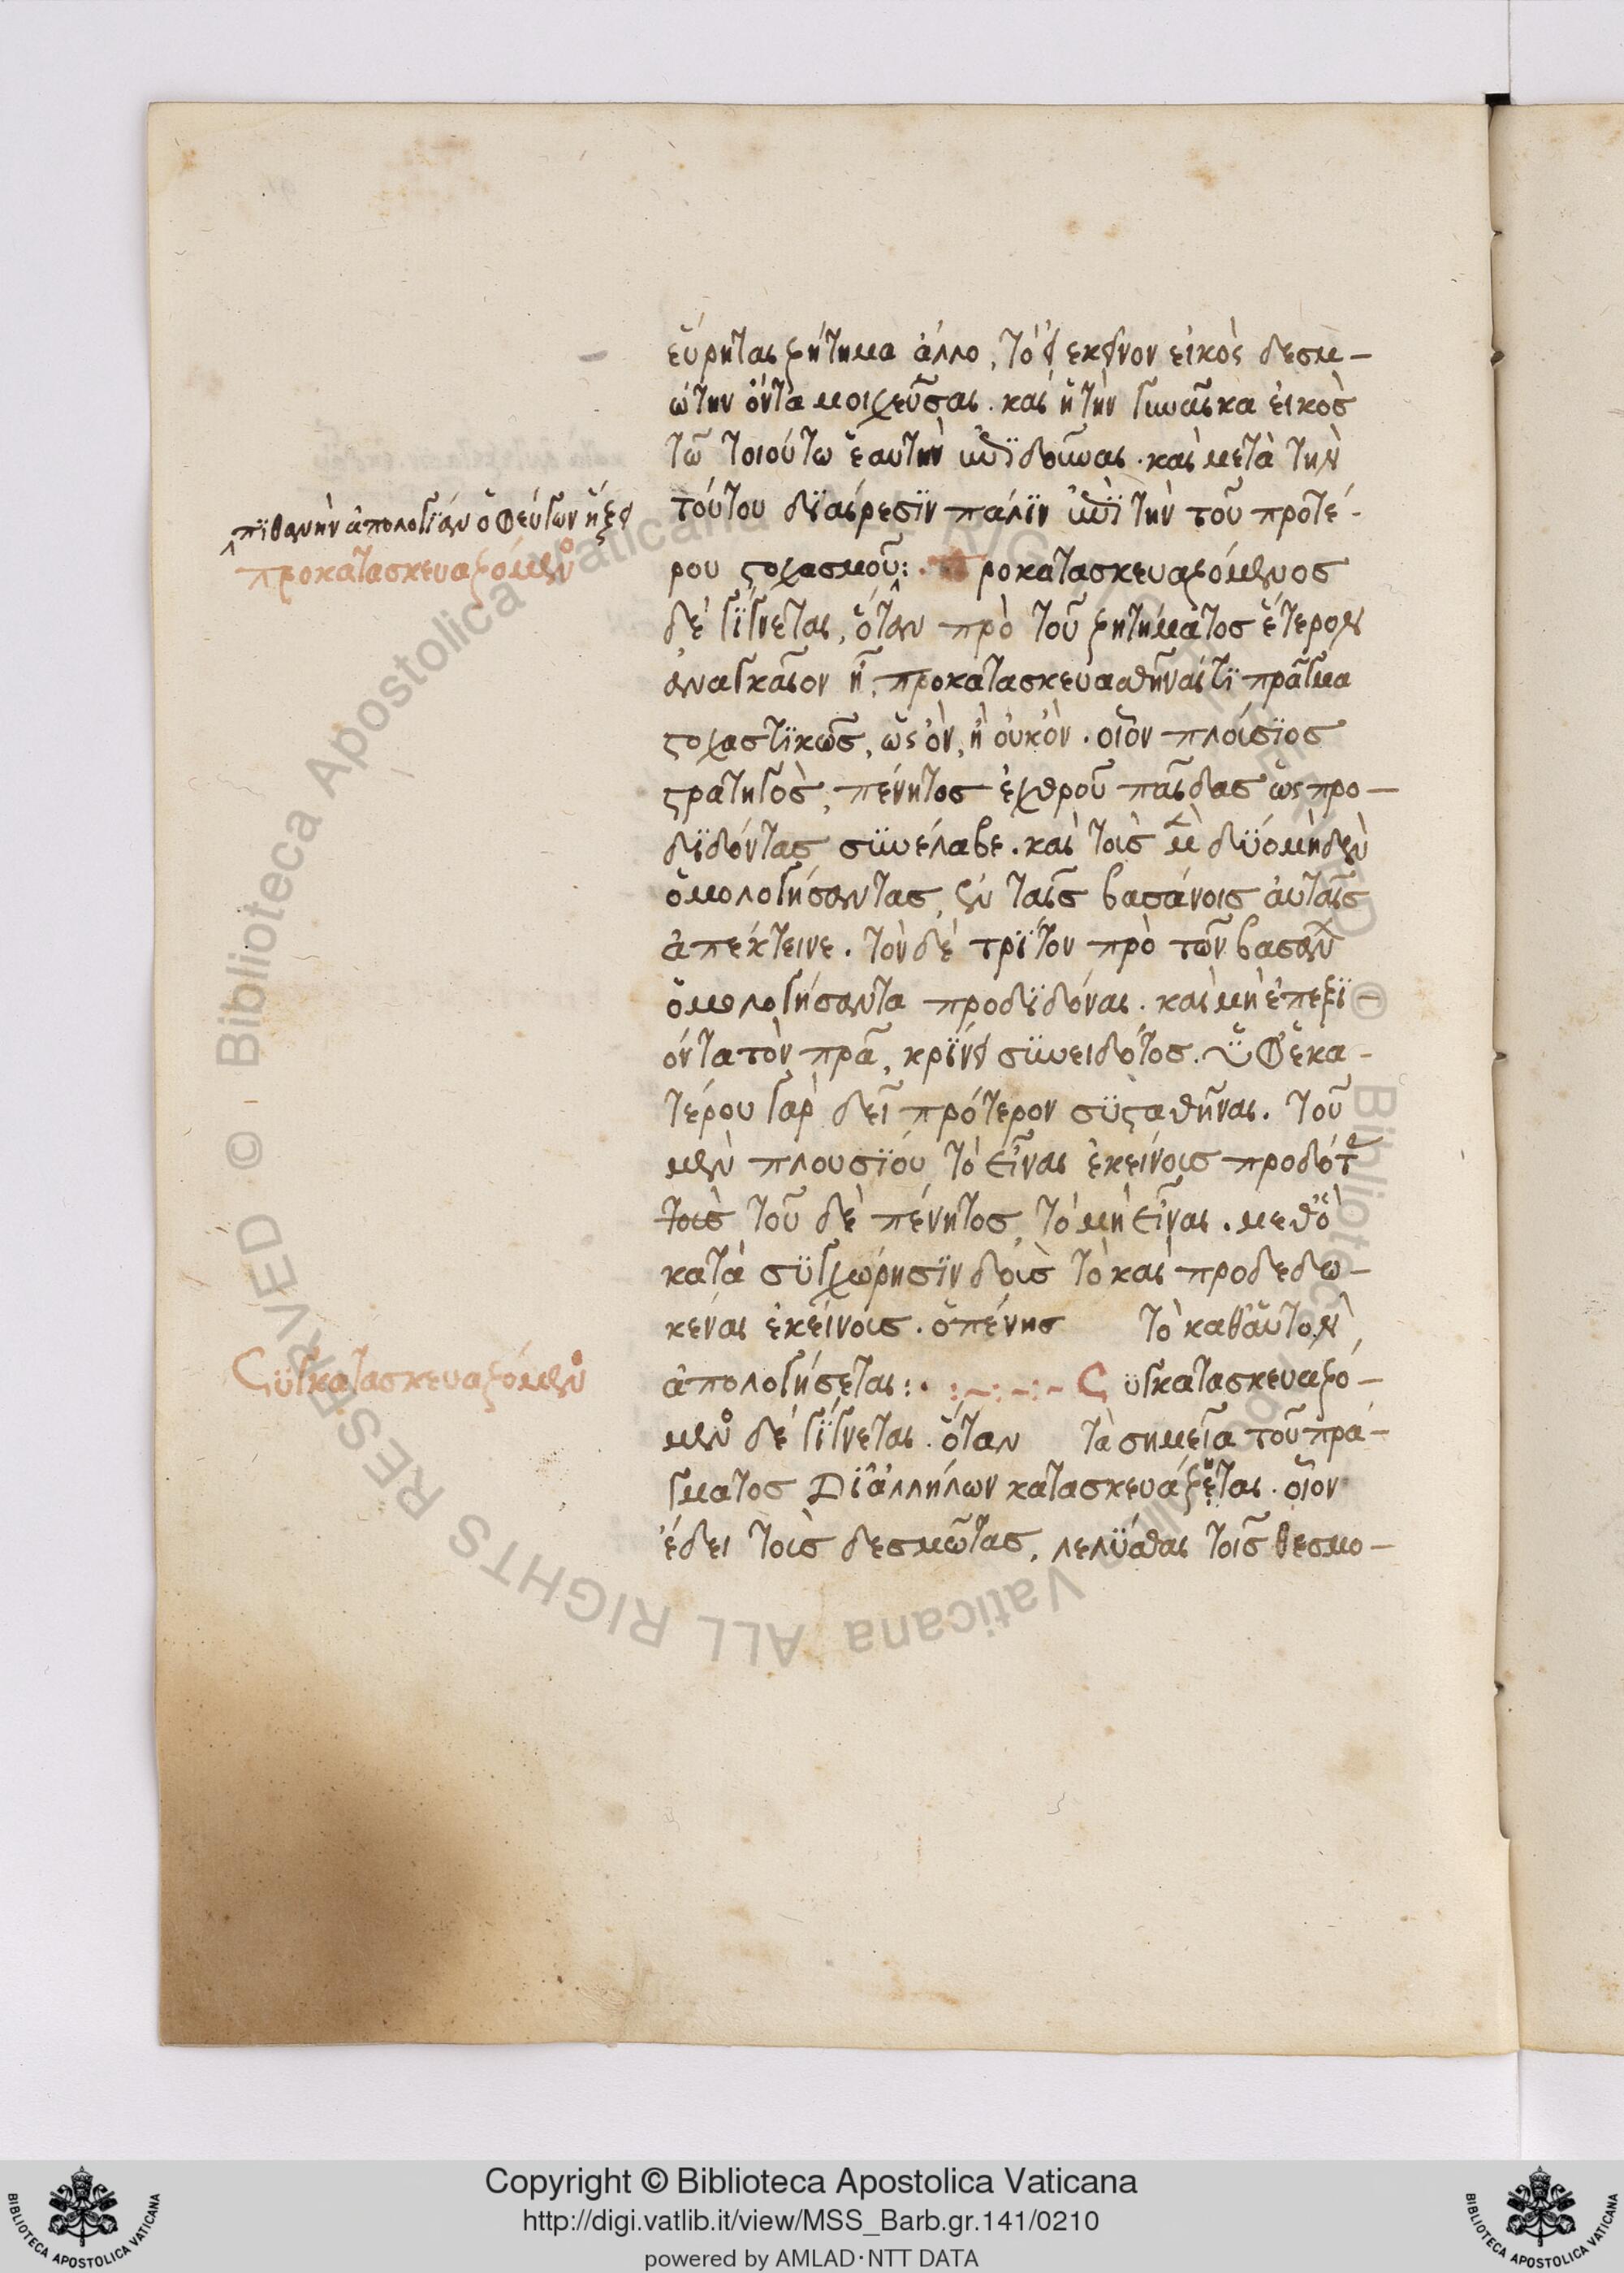 εὕρηται ζήτημα ἄλλο, τὸ εἰ ἐκεῖνον εἰκὸς δεσμ-
ώτην ὄντα μοιχεῦσαι. καὶ εἰ τὴν γυναῖκα εἰκὸς
τῶ τοιούτω ἑαυτὴν ἐπϊδοῦναι. καὶ μετὰ τὴν
τούτου δϊαίρεσϊν πάλϊν ἐπῒ τὴν τοῦ προτέ-
ρου στοχασμοῦ: προκατασκευαζόμενος
δὲ γίγνεται, ὅταν πρὸ τοῦ ζητήματος ἕτερον
ἀναγκαῖον ἦ, προκατασκευασθῆναί τϊ πρᾶγμα
στοχαστϊκῶς, ὡς ὂν, ἢ οὐκ ὂν. οἷον πλούσϊος
στρατηγὸς, πένητος ἐχθροῦ παῖδας ὡς προ-
δϊδόντας συνέλαβε. καὶ τοὺς μὲν δύο μηδὲν
ὁμολογήσαντας, ἐν ταῖς βασάνοις αὐταῖς
ἀπέκτεινε. τὸν δὲ τρίτον πρὸ τῶν βασάν
ὁμολογήσαντα προδϊδόναι. καὶ μὴ ἐπεξϊ-
όντα τὸν πρα, κρίνει συνειδότος. ὑφ' ἑκα-
τέρου γὰρ δεῖ πρότερον συσταθῆναι. τοῦ
μὲν πλουσίου τὸ εἶναι ἐκείνους προδότ
τοὺς τοῦ δὲ πένητος, τὸ μὴ εἶναι. μεθ' ὃ
κατὰ συγχώρησϊν δοὺς τὸ καὶ προδεδω-
κέναι ἐκείνους. ὁ πένης τὸ καθ' αὑτὸν
ἀπολογήσεται: Συγκατασκευαζό-
μενο δὲ γίγνεται. ὅταν τὰ σημεῖα τοῦ πρά-
γματος Δϊ' ἀλλήλων κατασκευάζεται. οἷον
ἔδει τοὺς δεσμώτας, λελύσθαι τοῖς θεσμο-
πϊθανὴν ἀπολογίαν ὁ φεύγων ἥξει
προκατασκευαζόμενο
Συγκατασκευαζόμενο
Copyright © Biblioteca Apostolica Vaticana
http://digi.vatlib.it/view/MSS_Barb.gr.141/0210
powered by AMLAD·NTT DATA
BIBLIOTECA APOSTOLICA VATICANA
BIBLIOTECA APOSTOLICA VATICANA
© Biblioteca Apostolica Vaticana ALL RIGHTS RESERVED
© Biblioteca Apostolica Vaticana ALL RIGHTS RESERVED